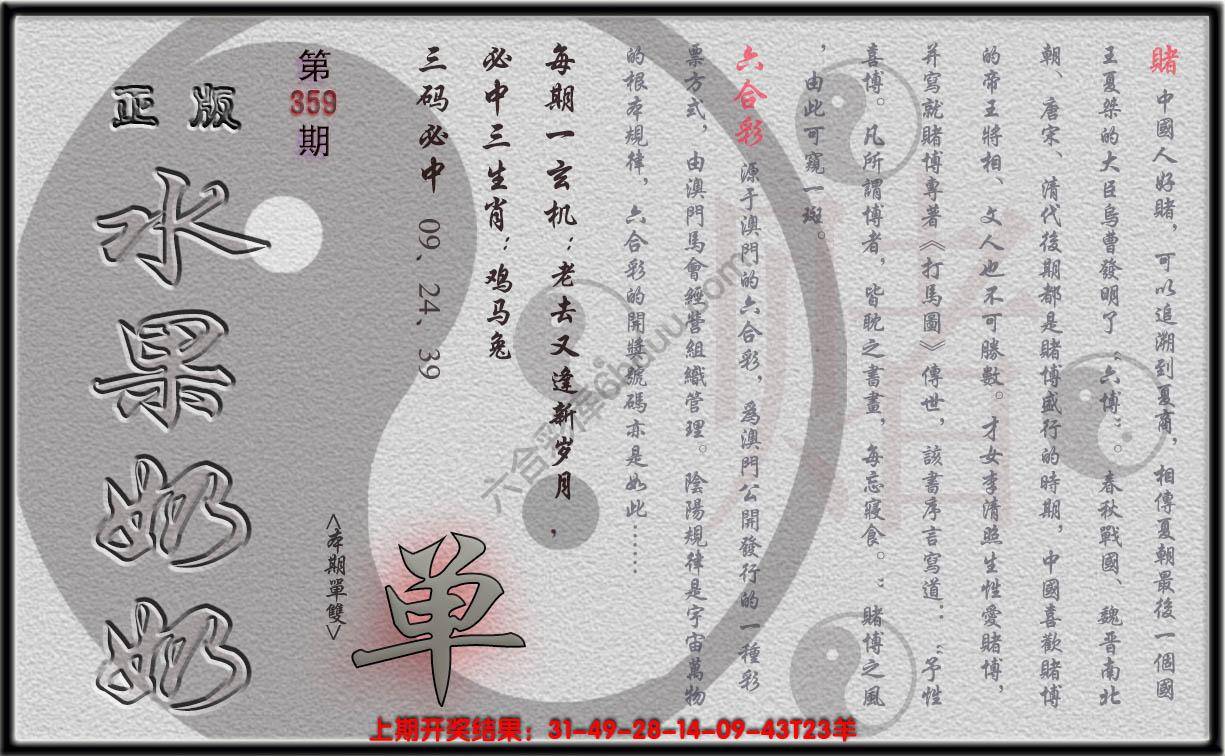 賭 中國人好賭，可以追溯到夏商，相傳夏朝最後一個國
王夏桀的大臣烏曹發明了“六博”。春秋戰國、魏晋南北
朝、唐宋、清代後期都是賭博盛行的時期，中國喜歡賭博
的帝王將相、文人也不可勝數。才女李清照生性愛賭博，
并寫就賭博專著《打馬圖》傳世，該書序言寫道：“予性
喜博。凡所謂博者，皆耽之書畫，每忘寢食。”賭博之風
，由此可窺一斑。
六合彩 源于澳門的六合彩，爲澳門公開發行的一種彩
票方式，由澳門馬會經營組織管理。陰陽規律是宇宙萬物
的根本規律，六合彩的開獎號碼亦是如此……
每期一玄机：老去又逢新岁月，
必中三生肖：鸡马兔
三码必中 09、24、39
第
359
期
正版
水果奶奶
<本期單雙>
单
賭
六合彩库6huuu.com
上期开奖结果：31-49-28-14-09-43T23羊